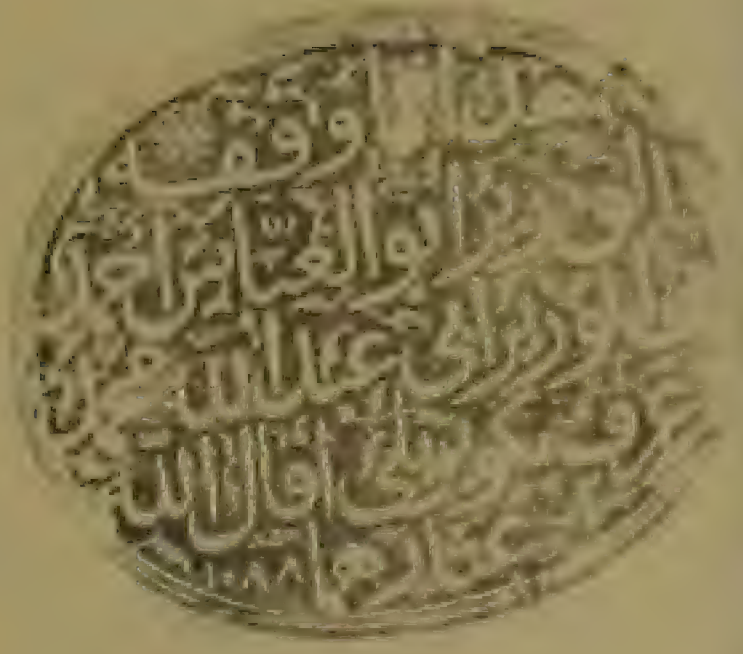 وقف
الوزير ابو العباس احمد
الوزير ابى عبد الله محمد
عرف اقال الله
عثارهما ١٠٨٨